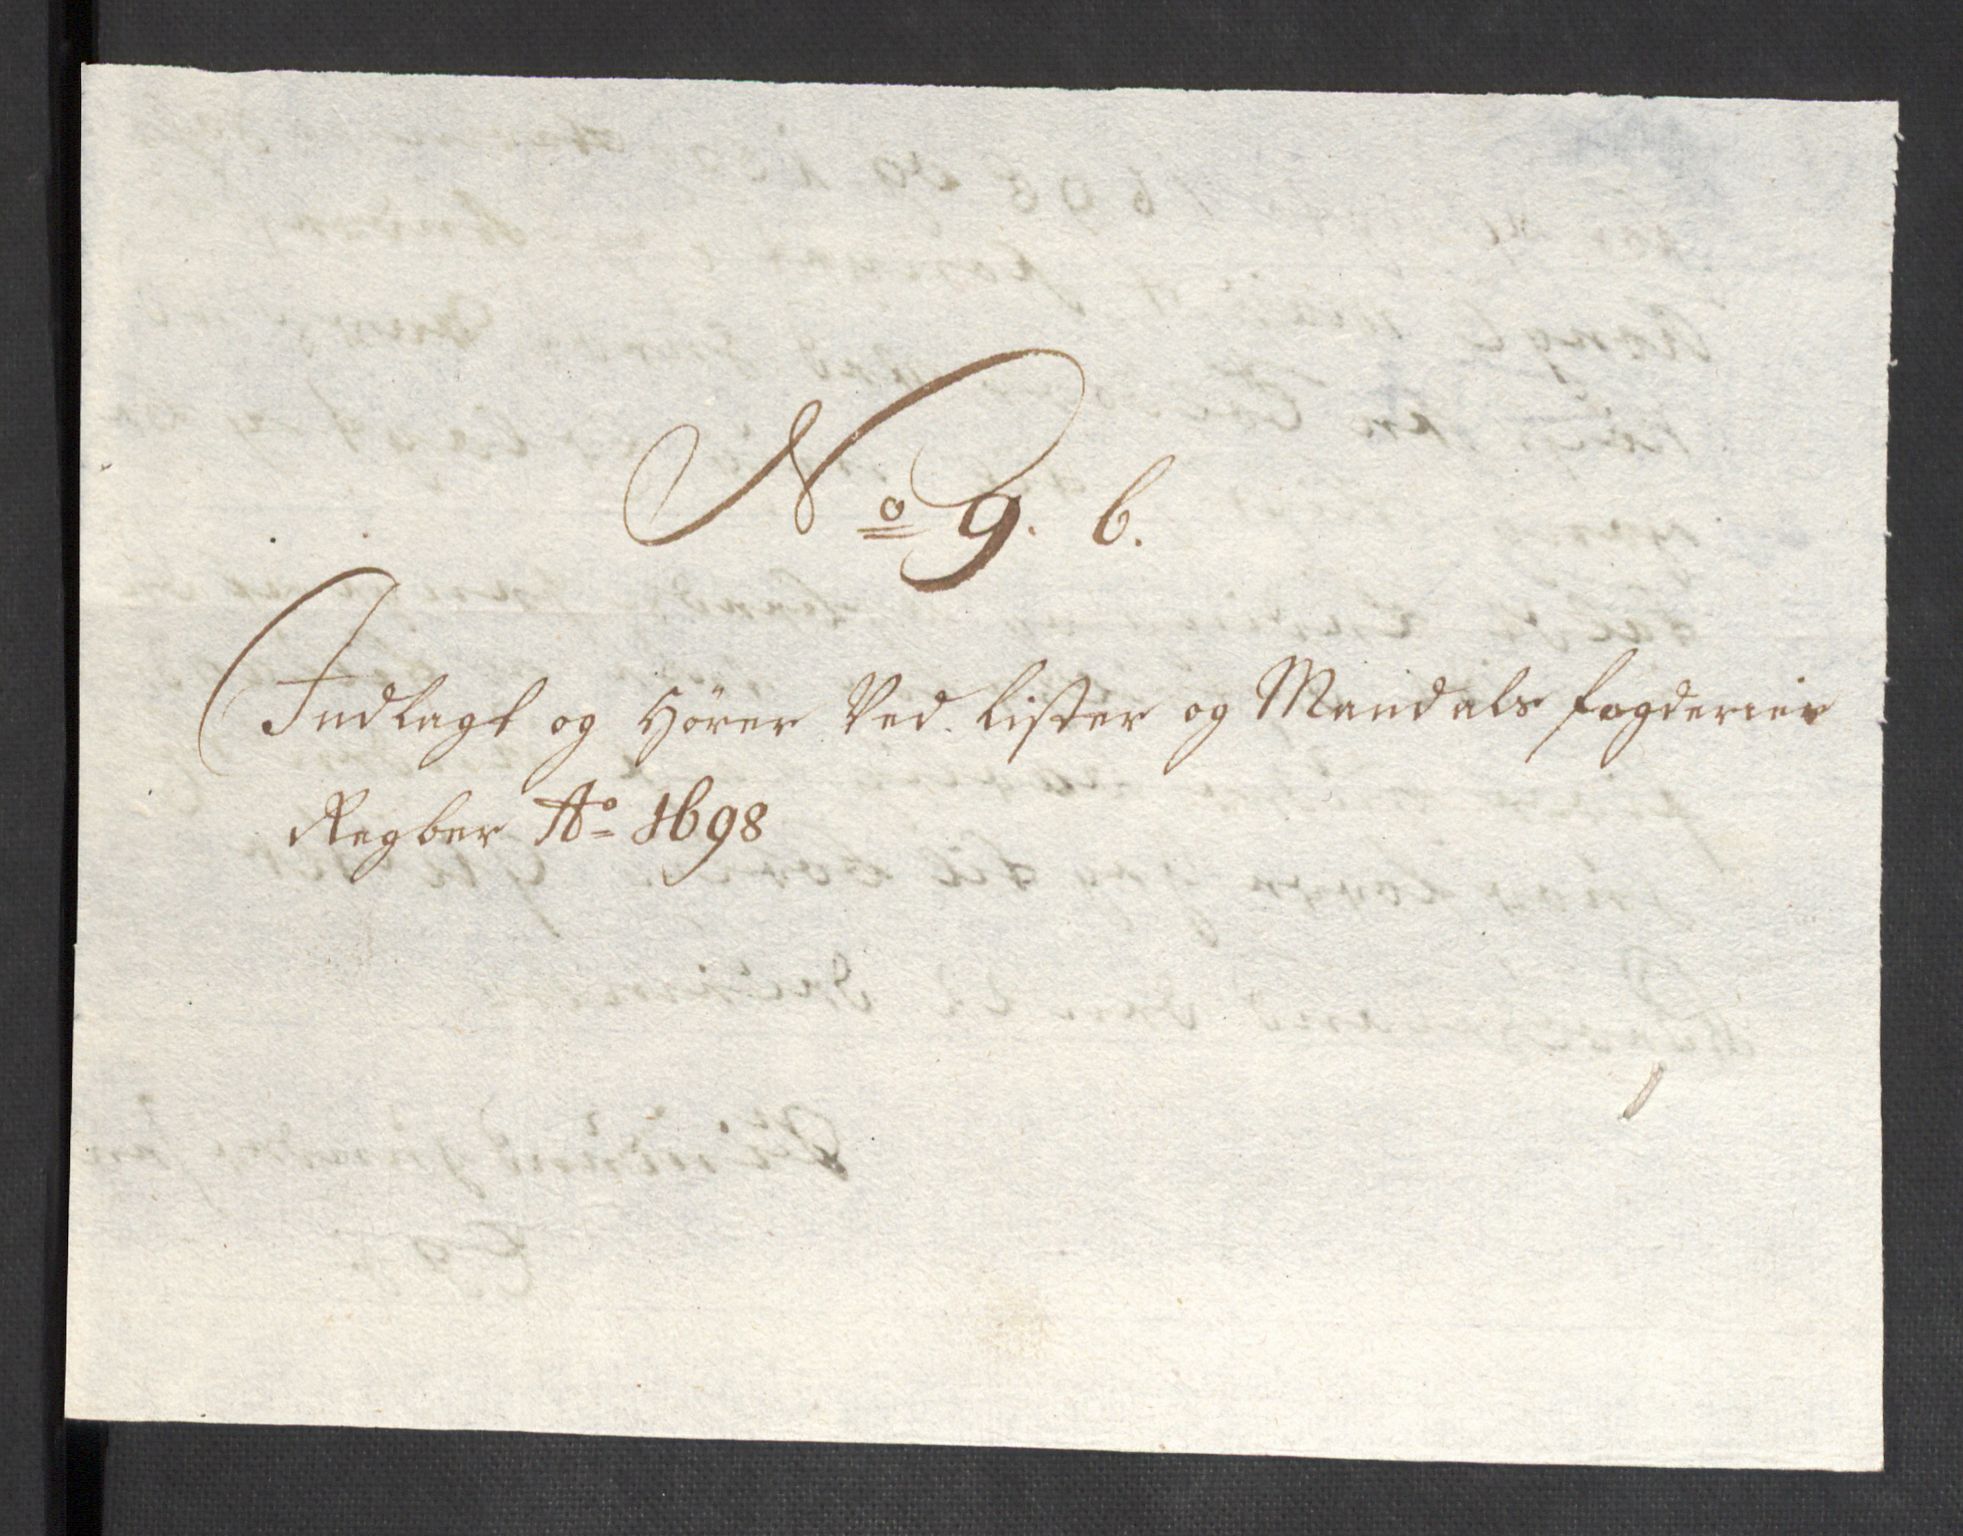 No 9. b.
Indlagt og Hörer Ved Lister og Mandals fogderier
Regber Ao 1698